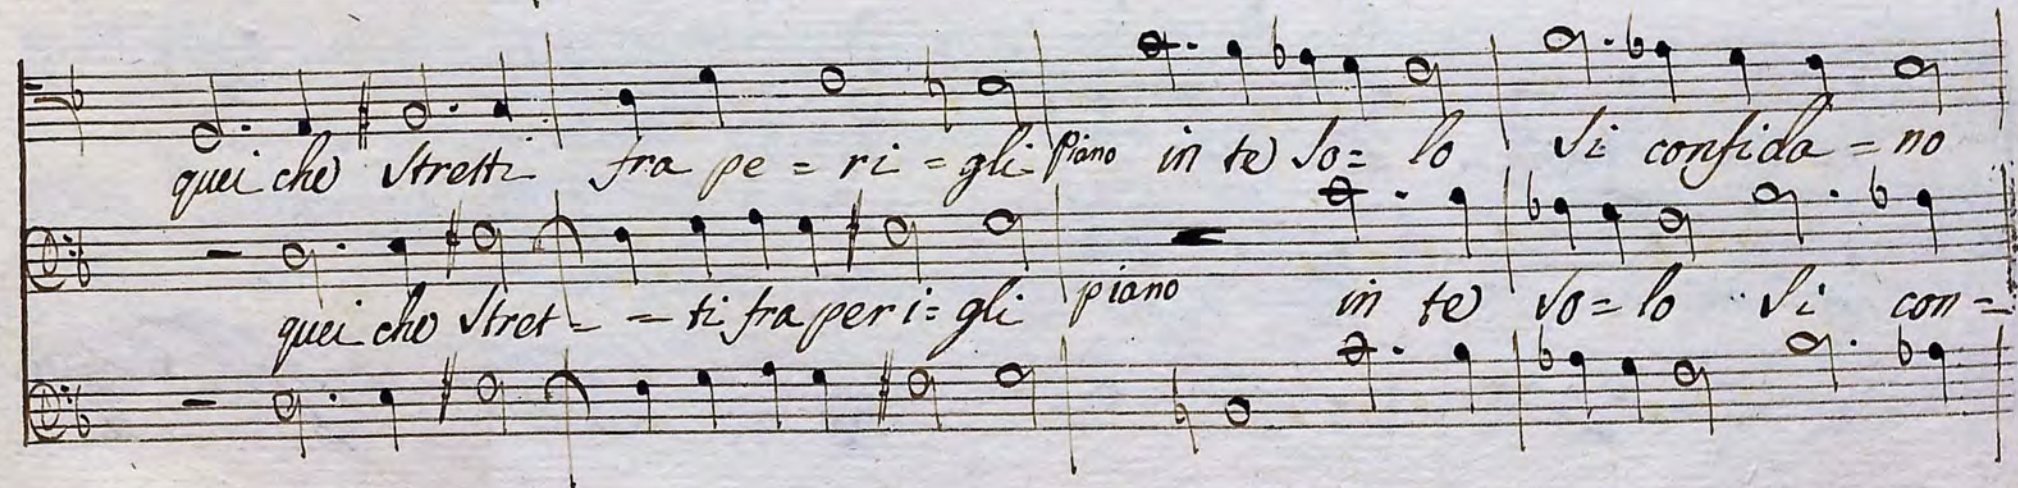 quei che stretti fra pe = ri = gli Piano in te so = lo si confida = no
quei che stret = = ti fra peri = gli piano in te so = lo si con =